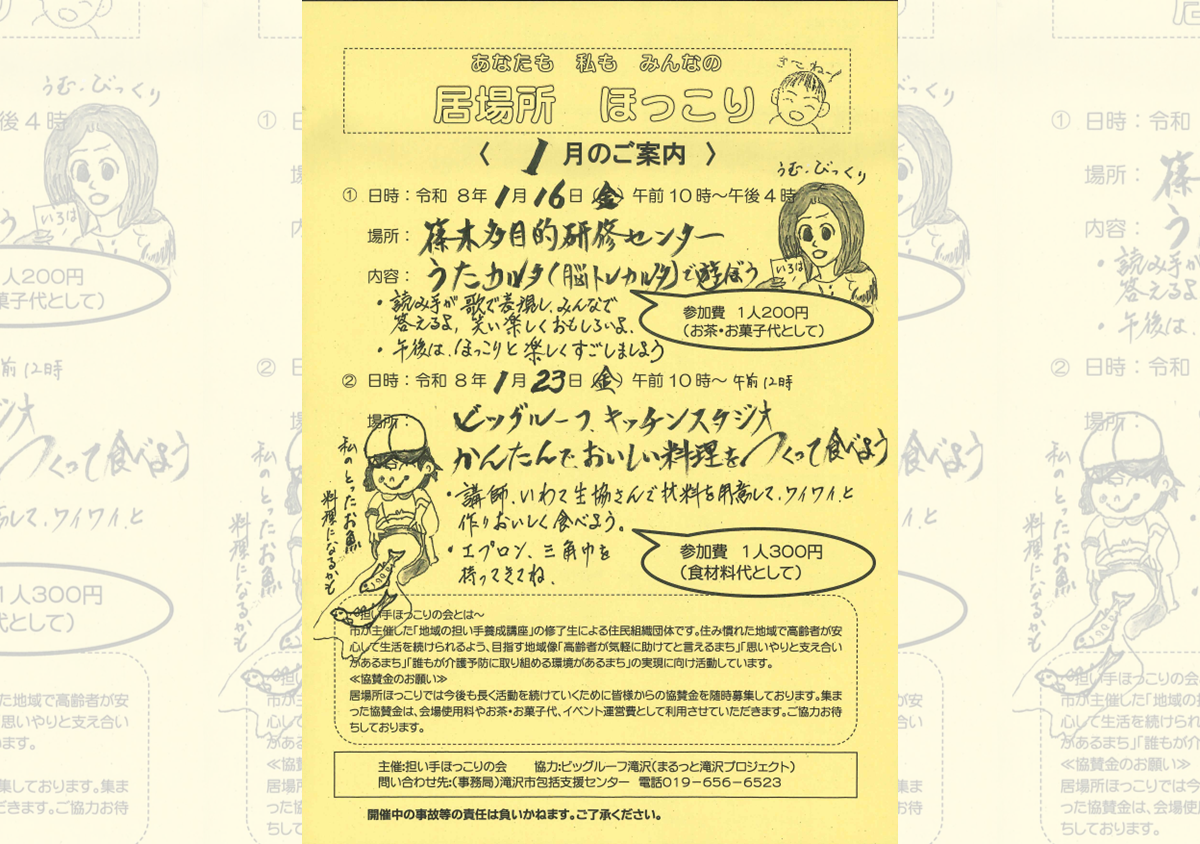 あなたも 私も みんなの
居場所 ほっこり
きてね！
〈 1月のご案内 〉
うむ、びっくり
① 日時：令和 8年 1月 16日（金）午前10時～午後4時
場所：篠木多目的研修センター
いろは
内容：うたカルタ（脳トレカルタ）で遊ぼう
・読み手が歌で表現し、みんなで
答えるよ、笑い楽しくおもしろいよ、
・午後は、ほっこりと楽しくすごしましょう
参加費 1人200円
（お茶・お菓子代として）
② 日時：令和 8年 1月 23日（金）午前10時～ 午前12時
場所： ビッグルーフ、キッチンスタジオ
かんたんで、おいしい料理をつくって食べよう
・講師、いわて生協さんで材料を用意して、ワイワイ、と
作りおいしく食べよう。
・エプロン、三角巾を
持ってきてね、
私のとったお魚
料理になるかも
参加費 1人300円
（食材料代として）
～担い手ほっこりの会とは～
市が主催した「地域の担い手養成講座」の修了生による住民組織団体です。住み慣れた地域で高齢者が安
心して生活を続けられるよう、目指す地域像「高齢者が気軽に助けてと言えるまち」「思いやりと支え合い
があるまち」「誰もが介護予防に取り組める環境があるまち」の実現に向け活動しています。
≪協賛金のお願い≫
居場所ほっこりでは今後も長く活動を続けていくために皆様からの協賛金を随時募集しております。集ま
った協賛金は、会場使用料やお茶・お菓子代、イベント運営費として利用させていただきます。ご協力お待
ちしております。
主催：担い手ほっこりの会 協力：ビッグルーフ滝沢（まるっと滝沢プロジェクト）
問い合わせ先：（事務局）滝沢市包括支援センター 電話019-656-6523
開催中の事故等の責任は負いかねます。ご了承ください。